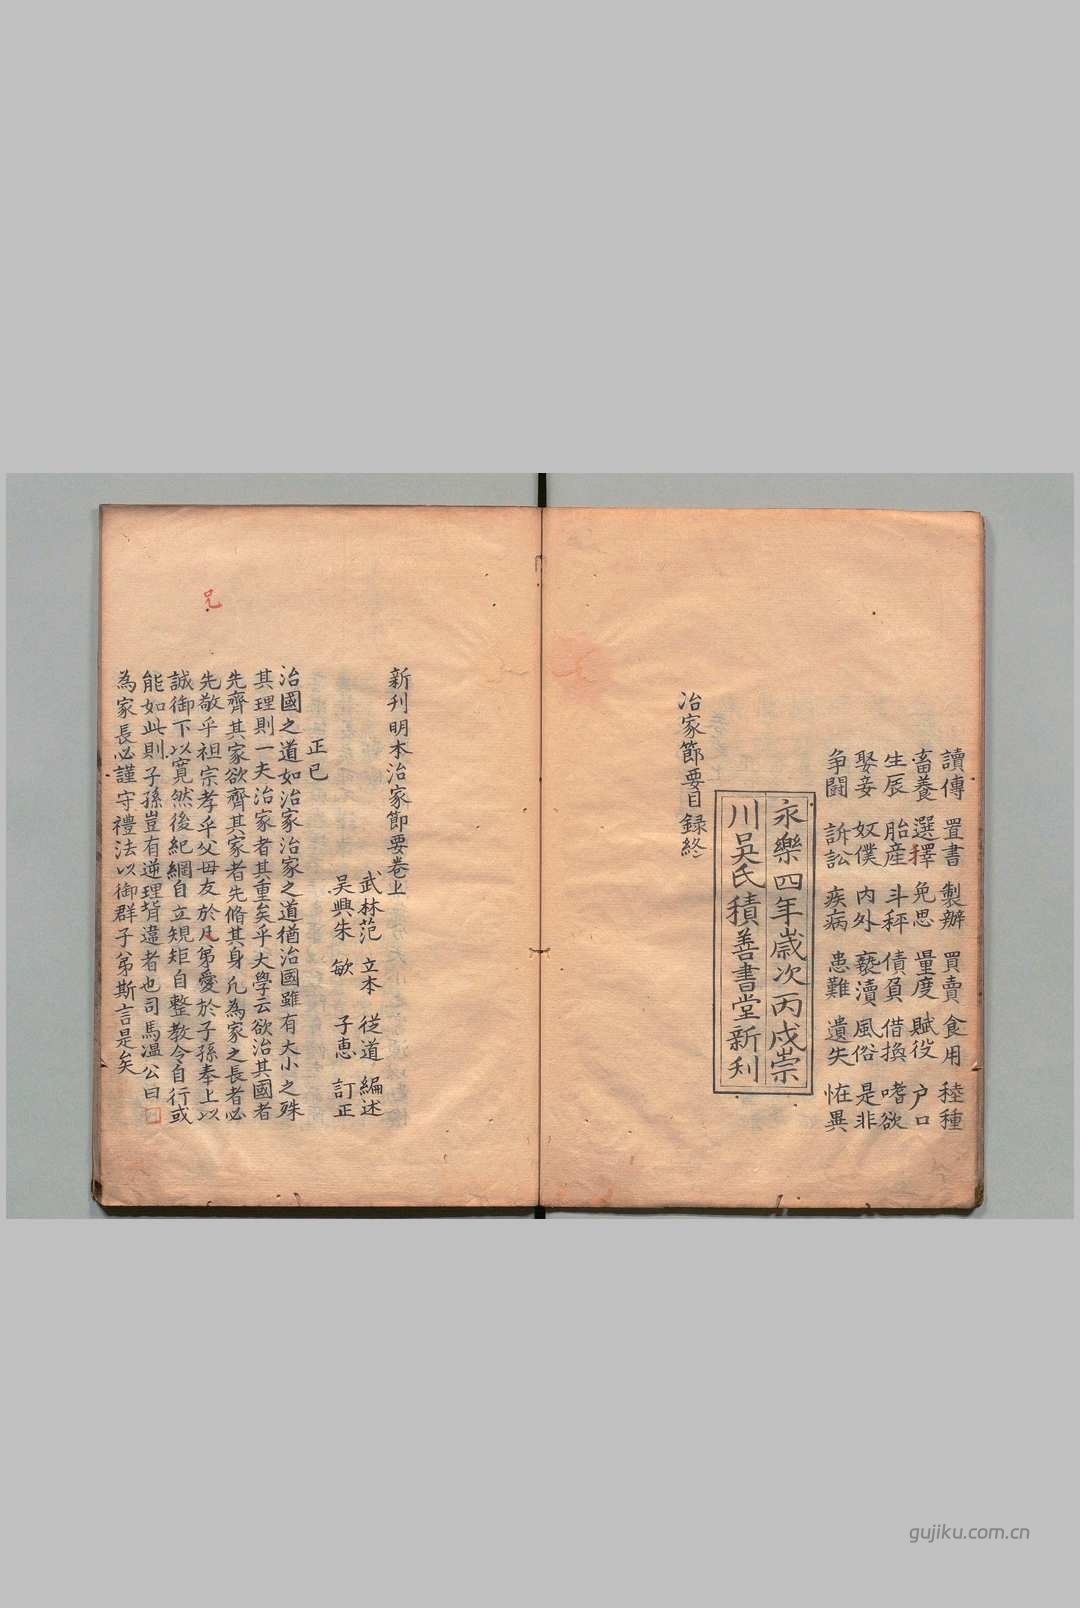 讀傳 置書 製辦 買賣 食用 稑種
畜養 選擇 免思 量度 賦役 户口
生辰 胎産 斗秤 債負 借換 嗜欲
娶妾 奴僕 内外 褻瀆 風俗 是非
争鬪 訴訟 疾病 患難 遺失 恠異
永樂四年歳次丙戌崇
川吳氏積善書堂新刋
治家節要目録終
新刊明本治家節要巻上
武林范 立本 従道 編述
吴興朱 敏 子恵 訂正
正已
治國之道如治家治家之道猶治國雖有大小之殊
其理則一夫治家者其重矣乎大學云欲治其國者
先齊其家欲齊其家者先脩其身凢為家之長者必
先敬乎祖宗孝乎父母友於凡弟愛於子孫奉上以
兄
誠御下以寛然後紀綱自立規矩自整教令自行或
能如此則子孫豈有逆理背違者也司馬温公曰
為家長必謹守禮法以御群子弟斯言是矣
gujiku.com.cn